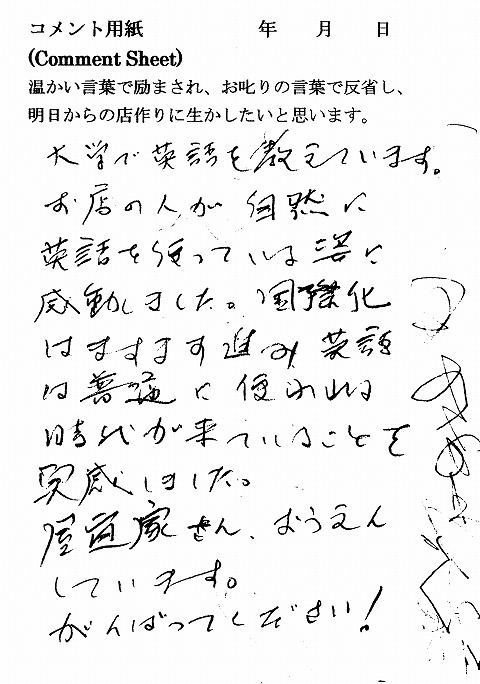 コメント用紙 年 月 日
(Comment Sheet)
温かい言葉で励まされ、お叱りの言葉で反省し、
明日からの店作りに生かしたいと思います。
大学で英語を教えています。
お店の人が自然に
英語を使っている姿に
感動しました。国際化
はますます進み英語
は普通に使われる
時代が来ていることを
実感しました。
屋宜家さん、おうえん
しています。
がんばってください!